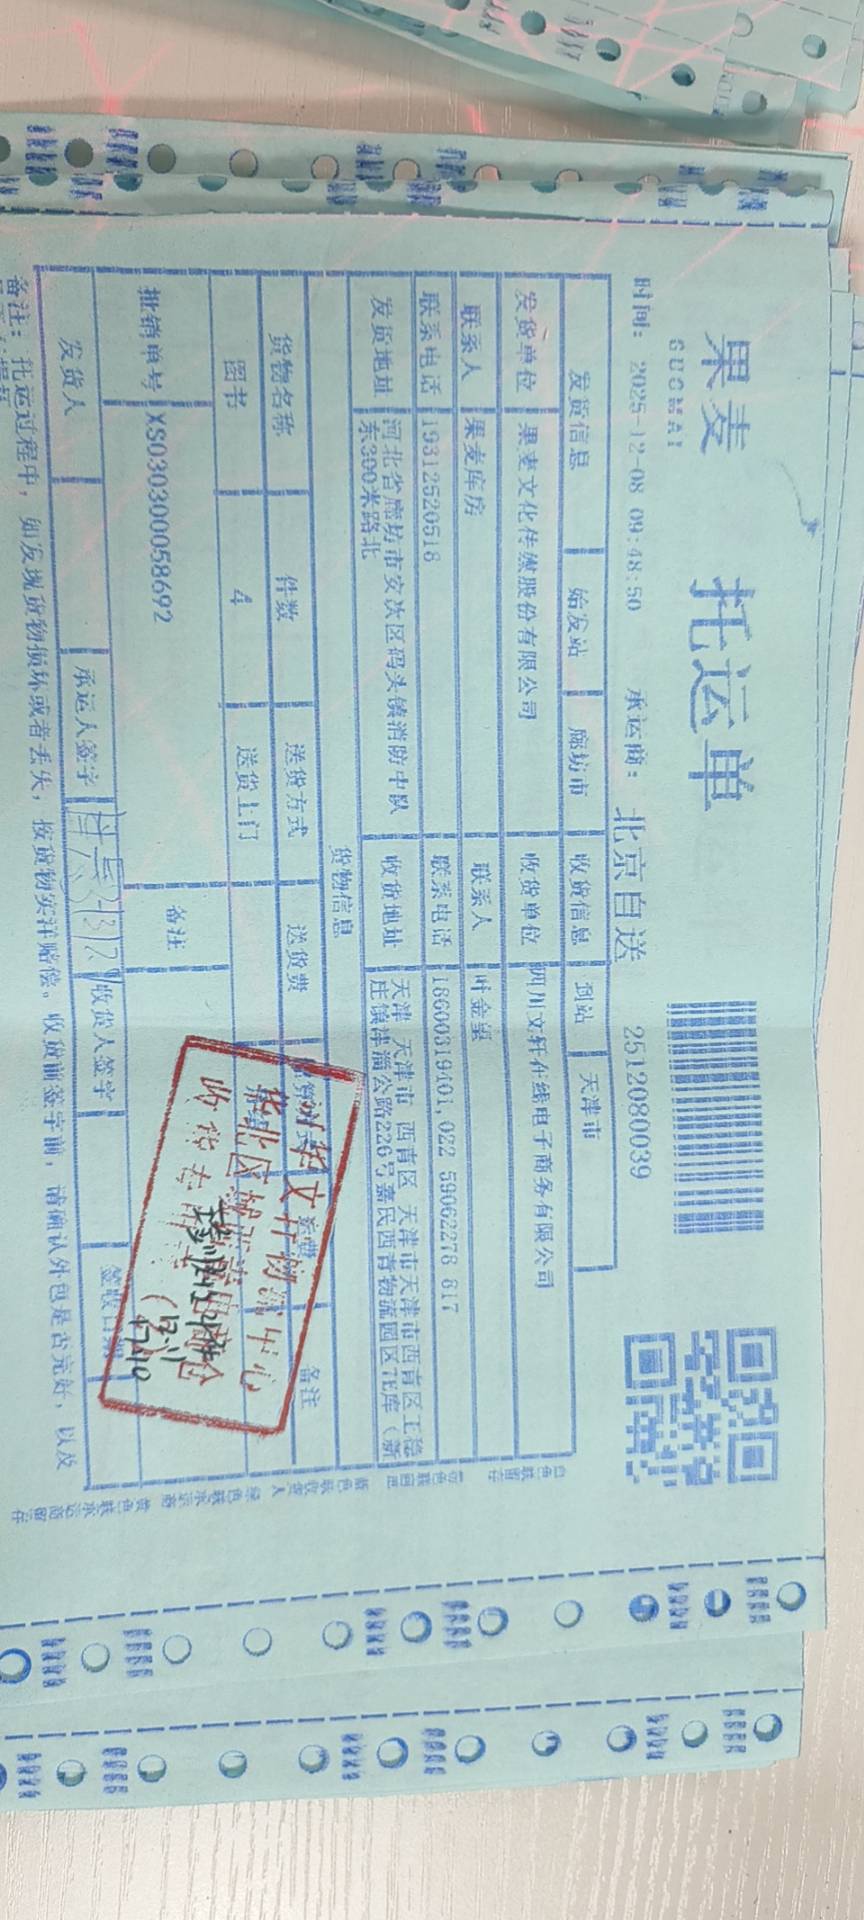 果麦
GUOMAI
托运单
时间: 2025-12-08 09:48:50 承运商: 北京自送 2512080039
发货信息 始发站 廊坊市 收货信息 到站 天津市
发货单位 果麦文化传媒股份有限公司 收货单位 四川文轩在线电子商务有限公司
联系人 果麦库房 联系人
联系电话 19312520518 联系电话 18600319101,022 59062278 817
发货地址 河北省廊坊市安次区码头镇消防中队东300米路北 收货地址 天津 天津市 西青区 天津市天津市西青区工稳庄镇津涵公路226号嘉民西青物流园区7E库(新
货物信息
货物名称 件数 送货方式 送货费 备注
图书 4 送货上门
批销单号 XS030300058692 备注
发货人 承运人签字 收货人签字 签收日期
备注: 托运过程中, 如发现货物损坏或者丢失, 按货物实洋赔偿。收货前签字前, 请确认外包是否完好, 以及